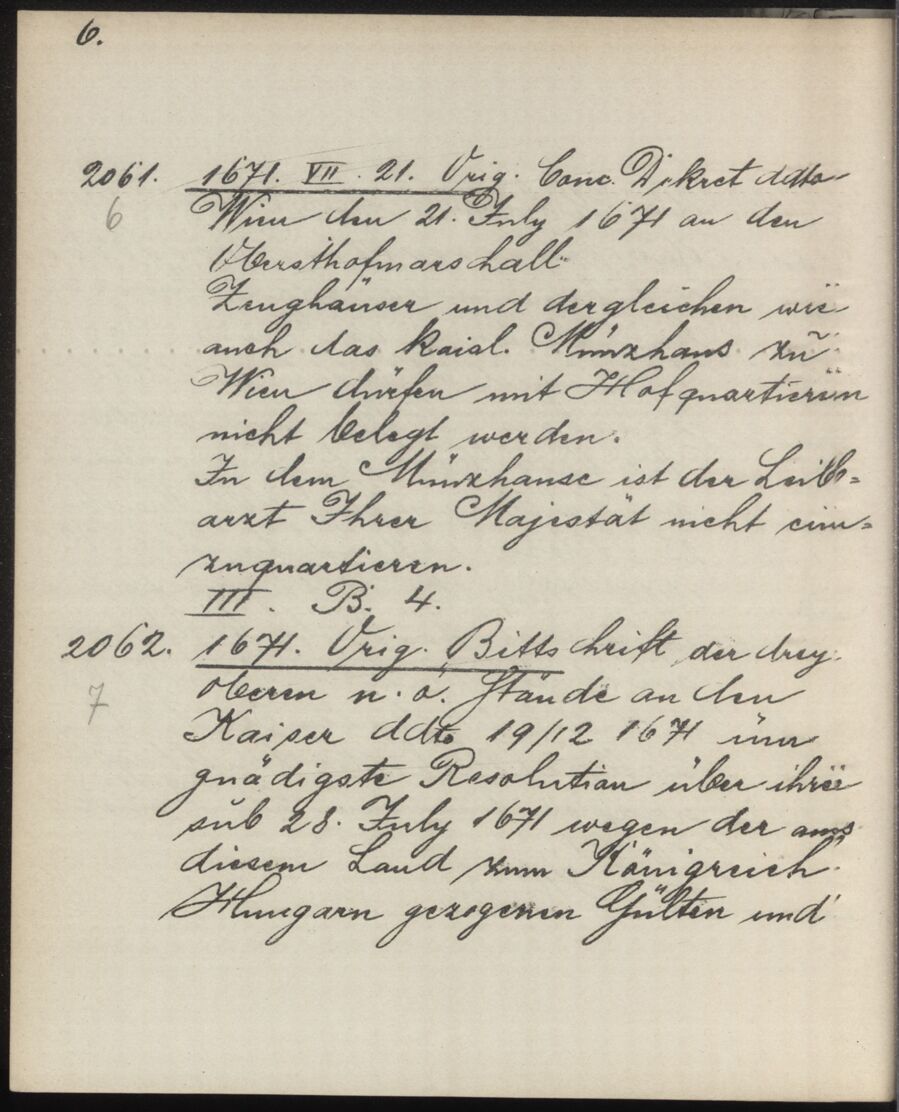 6.
2061. 1671. VII. 21. Orig. Conc. Dekret ddto
6 Wien den 21. July 1671 an den
Obersthofmarschall.
Zeughäuser und dergleichen wie
auch das kaisl. Münzhaus zu
Wien dürfen mit Hofquartieren
nicht belegt werden.
In dem Münzhause ist der Leib=
arzt Ihrer Majestät nicht ein=
zuquartieren.
III. B. 4.
2062. 1671. Orig. Bittschrift der drey
7 oberen n. ö. Stände an den
Kaiser ddto 19/12 1671 um
gnädigste Resolution über ihre
sub 28. July 1671 wegen der aus
diesem Land zum Königreich
Hungarn gezogenen Gülten und